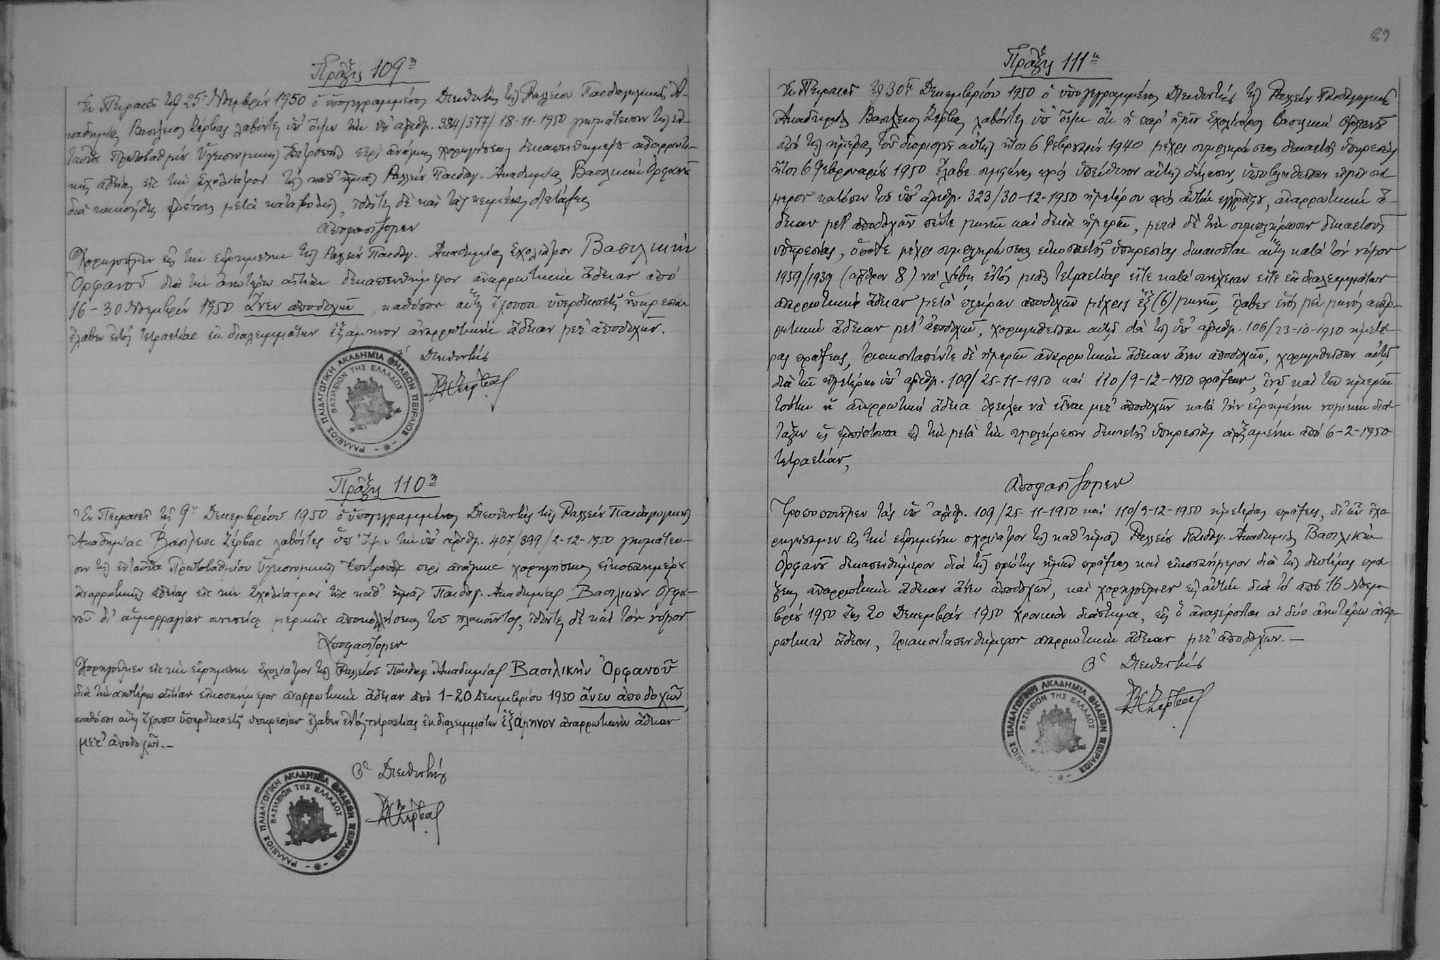 Πρᾶξις 109η
Ἐν Πειραιεῖ τῇ 25ῃ Νοεμβρίου 1950 ὁ ὑπογεγραμμένος Διευθυντὴς τῆς Ραλλείου Παιδαγωγικῆς Ἀ-
καδημίας Βασίλειος Ζέρβας λαβόντες ὑπ' ὄψιν τὴν ὑπ' ἀριθμ. 384/377/18-11-1950 γνωμάτευσιν τῆς ἐν-
ταῦθα Πρωτοβαθμίου Ὑγειονομικῆς Ἐπιτροπῆς περὶ ἀνάγκης χορηγήσεως δεκαπενθημέρου ἀναρρωτι-
κῆς ἀδείας εἰς τὴν σχολίατρον τῆς καθ' ἡμᾶς Ραλλείου Παιδαγ. Ἀκαδημίας Βασιλικὴν Ὀρφανοῦ
διὰ μετὰ ἰδόντες δὲ καὶ τὰς κειμένας διατάξεις
ἀποφασίζομεν
Χορηγοῦμεν εἰς τὴν εἰρημένην τῆς Ραλλείου Παιδαγ. Ἀκαδημίας σχολίατρον Βασιλικὴν
Ὀρφανοῦ διὰ τὴν ἀνωτέρω αἰτίαν δεκαπενθήμερον ἀναρρωτικὴν ἄδειαν ἀπὸ
16-30 Νοεμβρίου 1950 ἄνευ ἀποδοχῶν, καθόσον αὕτη ἔχουσα ὑπερδεκαετῆ ὑπηρεσίαν
ἔλαβεν ἐντὸς τετραετίας ἐκ διαλειμμάτων ἑξάμηνον ἀναρρωτικὴν ἄδειαν μετ' ἀποδοχῶν.
Ὁ Διευθυντὴς
ΡΑΛΛΕΙΟΣ ΠΑΙΔΑΓΩΓΙΚΗ ΑΚΑΔΗΜΙΑ ΘΗΛΕΩΝ ΠΕΙΡΑΙΩΣ
ΒΑΣΙΛΕΙΟΝ ΤΗΣ ΕΛΛΑΔΟΣ
Β. Ζέρβας
Πρᾶξις 110η
Ἐν Πειραιεῖ τῇ 9ῃ Δεκεμβρίου 1950 ὁ ὑπογεγραμμένος Διευθυντὴς τῆς Ραλλείου Παιδαγωγικῆς
Ἀκαδημίας Βασίλειος Ζέρβας λαβόντες ὑπ' ὄψιν τὴν ὑπ' ἀριθμ. 407/399/2-12-1950 γνωμάτευ-
σιν τῆς ἐνταῦθα Πρωτοβαθμίου Ὑγειονομικῆς Ἐπιτροπῆς περὶ ἀνάγκης χορηγήσεως εἰκοσαημέρου
ἀναρρωτικῆς ἀδείας εἰς τὴν σχολίατρον τῆς καθ' ἡμᾶς Παιδαγ. Ἀκαδημίας Βασιλικὴν Ὀρφα-
νοῦ δι' αἱμορραγίαν μερικῆς ἀποκολλήσεως τοῦ πλακοῦντος, ἰδόντες δὲ καὶ τὸν νόμον
Ἀποφασίζομεν
Χορηγοῦμεν εἰς τὴν εἰρημένην σχολίατρον τῆς Ραλλείου Παιδαγ. Ἀκαδημίας Βασιλικὴν Ὀρφανοῦ
διὰ τὴν ἀνωτέρω αἰτίαν εἰκοσαήμερον ἀναρρωτικὴν ἄδειαν ἀπὸ 1-20 Δεκεμβρίου 1950 ἄνευ ἀποδοχῶν,
καθόσον αὕτη ἔχουσα ὑπερδεκαετῆ ὑπηρεσίαν ἔλαβεν ἐντὸς τετραετίας ἐκ διαλειμμάτων ἑξάμηνον ἀναρρωτικὴν ἄδειαν
μετ' ἀποδοχῶν.—
Ὁ Διευθυντὴς
ΡΑΛΛΕΙΟΣ ΠΑΙΔΑΓΩΓΙΚΗ ΑΚΑΔΗΜΙΑ ΘΗΛΕΩΝ ΠΕΙΡΑΙΩΣ
ΒΑΣΙΛΕΙΟΝ ΤΗΣ ΕΛΛΑΔΟΣ
Β. Ζέρβας
89
Πρᾶξις 111η
Ἐν Πειραιεῖ τῇ 30ῃ Δεκεμβρίου 1950 ὁ ὑπογεγραμμένος Διευθυντὴς τῆς Ραλλείου Παιδαγωγικῆς
Ἀκαδημίας Βασίλειος Ζέρβας λαβόντες ὑπ' ὄψιν ὅτι ἡ παρ' ἡμῖν σχολίατρος Βασιλικὴ Ὀρφανοῦ
ἀπὸ τῆς ἡμέρας τοῦ διορισμοῦ αὐτῆς ἤτοι 6 Φεβρουαρίου 1940 μέχρι συμπληρώσεως δεκαετοῦς ὑπηρεσίας
ἤτοι 6 Φεβρουαρίου 1950 ἔλαβε συμφώνως πρὸς ὑπεύθυνον αὐτῆς δήλωσιν, ὑποβληθεῖσαν ἡμῖν σή-
μερον κατόπιν τοῦ ὑπ' ἀριθμ. 323/30-12-1950 ἡμετέρου πρὸς αὐτὴν ἐγγράφου, ἀναρρωτικὴν ἄ-
δειαν μετ' ἀποδοχῶν πέντε μηνῶν καὶ δέκα ἡμερῶν, μετὰ δὲ τὴν συμπλήρωσιν δεκαετοῦς
ὑπηρεσίας, ὁπότε μέχρι συμπληρώσεως εἰκοσαετοῦς ὑπηρεσίας δικαιοῦται αὕτη κατὰ τὸν νόμον
1959/1939 (ἄρθρον 8) νὰ λάβῃ ἐντὸς μιᾶς τετραετίας εἴτε κατὰ συνέχειαν εἴτε ἐκ διαλειμμάτων
ἀναρρωτικὴν ἄδειαν μετὰ πλήρων ἀποδοχῶν μέχρις ἓξ (6) μηνῶν, ἔλαβεν ἑνὸς μὲν μηνὸς ἀναρ-
ρωτικὴν ἄδειαν μετ' ἀποδοχῶν, χορηγηθεῖσαν αὐτῇ διὰ τῆς ὑπ' ἀριθμ. 106/23-10-1950 ἡμετέ-
ρας πράξεως, τριακονταπέντε δὲ ἡμερῶν ἀναρρωτικὴν ἄδειαν ἄνευ ἀποδοχῶν, χορηγηθεῖσαν αὐτῇ
διὰ τῶν ἡμετέρων ὑπ' ἀριθμ. 109/25-11-1950 καὶ 110/9-12-1950 πράξεων, ἐνῷ καὶ τῶν ἡμερῶν
τούτων ἡ ἀναρρωτικὴ ἄδεια ὀφείλει νὰ εἶναι μετ' ἀποδοχῶν κατὰ τὴν εἰρημένην νομικὴν διά-
ταξιν ὡς ἐμπίπτουσα εἰς τὴν μετὰ τὴν συμπλήρωσιν δεκαετοῦς ὑπηρεσίας ἀρξαμένην ἀπὸ 6-2-1950
τετραετίαν,
Ἀποφασίζομεν
Τροποποιοῦμεν τὰς ὑπ' ἀριθμ. 109/25-11-1950 καὶ 110/9-12-1950 ἡμετέρας πράξεις, δι' ὧν ἐχο-
ρηγήσαμεν εἰς τὴν εἰρημένην σχολίατρον τῆς καθ' ἡμᾶς Ραλλείου Παιδαγ. Ἀκαδημίας Βασιλικὴν
Ὀρφανοῦ δεκαπενθήμερον διὰ τῆς πρώτης ἡμῶν πράξεως καὶ εἰκοσαήμερον διὰ τῆς δευτέρας πρά-
ξεως ἀναρρωτικὴν ἄδειαν ἄνευ ἀποδοχῶν, καὶ χορηγοῦμεν εἰς αὐτὴν διὰ τὸ ἀπὸ 16 Νοεμ-
βρίου 1950 ἕως 20 Δεκεμβρίου 1950 χρονικὸν διάστημα, εἰς ὃ ἀναφέρονται αἱ δύο ἀνωτέρω ἀναρ-
ρωτικαὶ ἄδειαι, τριακονταπενθήμερον ἀναρρωτικὴν ἄδειαν μετ' ἀποδοχῶν.—
Ὁ Διευθυντὴς
ΡΑΛΛΕΙΟΣ ΠΑΙΔΑΓΩΓΙΚΗ ΑΚΑΔΗΜΙΑ ΘΗΛΕΩΝ ΠΕΙΡΑΙΩΣ
ΒΑΣΙΛΕΙΟΝ ΤΗΣ ΕΛΛΑΔΟΣ
Β. Ζέρβας